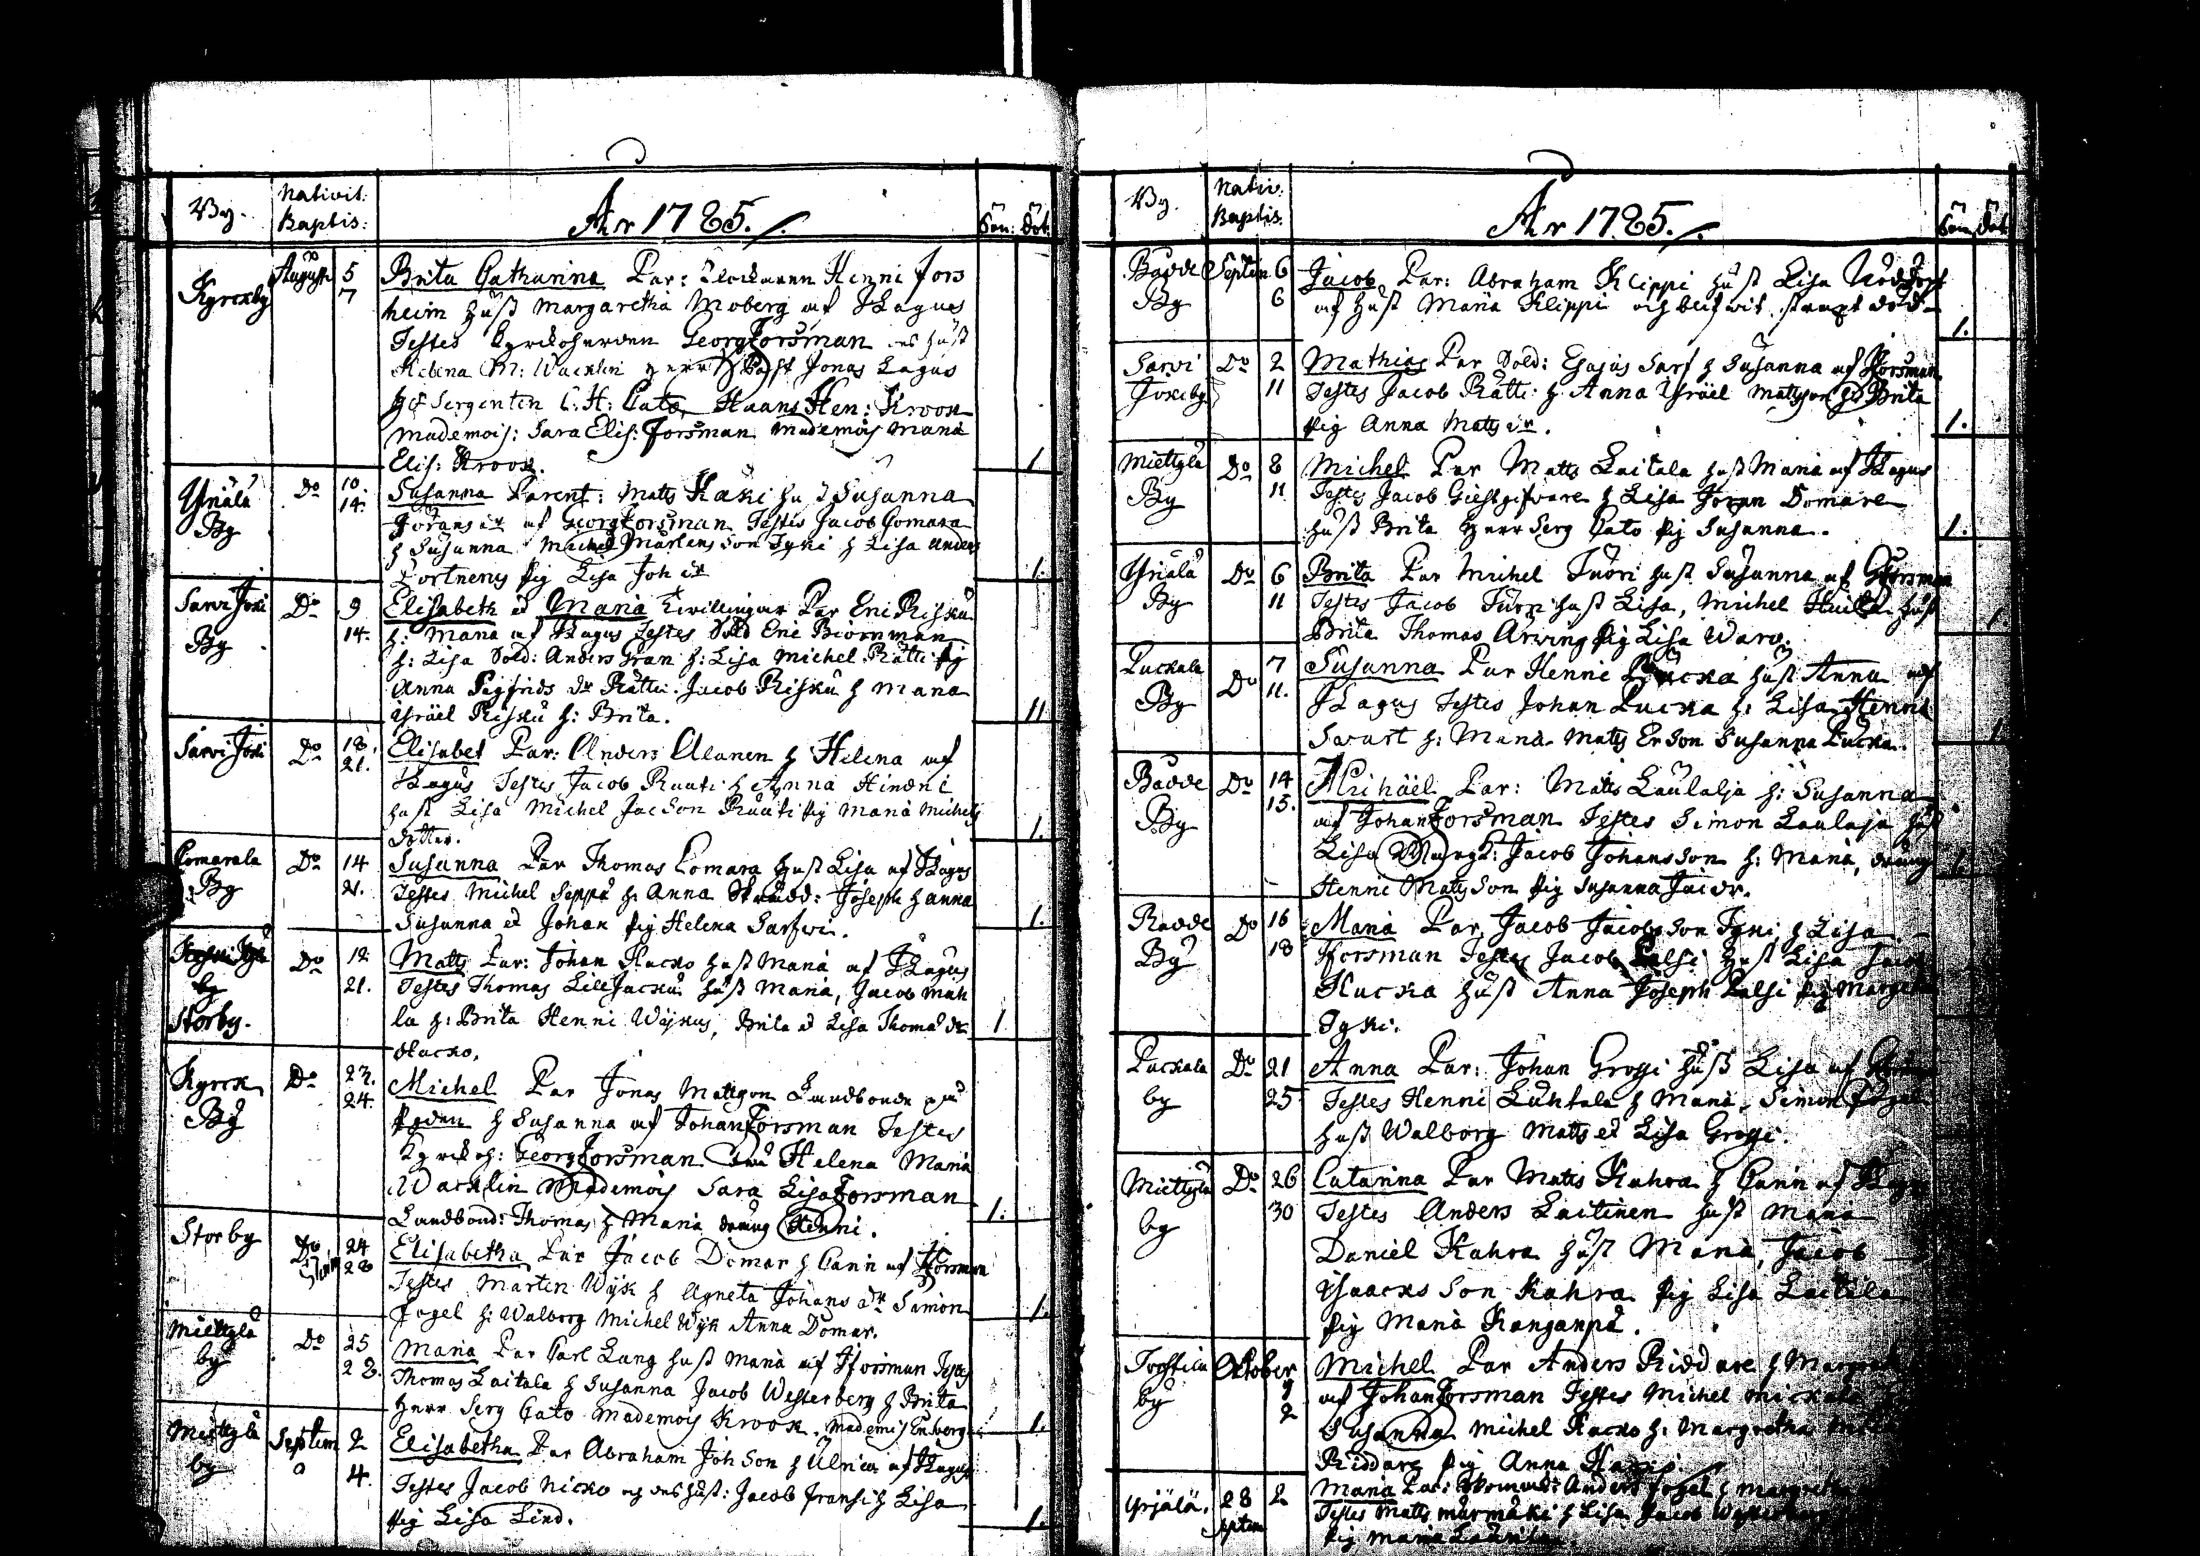 By.
Nativit:
Baptis:
Åhr 1785.
Sön: Döt:
Kyrckby
August 5
7
Brita Catharina Par: Klockaren Henric Fors
heim hust Margaretha Moberg af J Lagus
Testes Kyrckoherden Georg Forsman hust
Helena M: Wacklin Herr Past Jonas Lagus
Sergenten C: H: Cato, Haans Hen: Krook
Mademois: Sara Elis: Forsman Mademois Maria
Elis: Krook.
1
Yriälä
By
Do 10.
14.
Susanna Parent: Matts Käki hu Susanna
Görans dr af Georg Forsman Testes Jacob Pomara
h Susanna Michel Mårtens Son Tyni h Lisa Anders
Portnerus pig Lisa Joh dr
1.
Sarvi Joki
By
Do 9
14.
Elisabeth et Maria twillingar Par Eric Risku
h: Maria af J Lagus Testes Sold Eric Biörnman
h: Lisa Sold: Anders Gran h: Lisa Michel Rätti pig
Anna Sigfrids dr Rätti. Jacob Risku h Maria
Israel Risku h: Brita.
11
Sarvi Joki
Do 18.
21.
Elisabet Par: Anders Alanen h Helena af
J Lagus Testes Jacob Ruuti h Anna Hindric
hust Lisa Michel Jac Son Ruuti pig Maria Michels
dotter.
1.
Pomarala
By
Do 14
21.
Susanna Par Thomas Pomara hust Lisa af J Lagus
Testes Michel Seppä h: Anna Joseph h Anna
Susanna et Johan pig Helena
1.
by
Storby.
Do 18
21.
Matts Par: Johan Hacko hust Maria af J Lagus
Testes Thomas Lill Jacku hust Maria, Jacob
la h: Brita Henric Wijkus, Brita et Lisa Thomæ dr
Hacko.
1
Kyrck
By
Do 23.
24.
Michel Par Jonas Mattsson Landbonde på
h Susanna af Johan Forsman Testes
Kyrckoh: Georg Forsman Fru Helena Maria
Wacklin Mademois Sara Lisa Forsman
Landbond: Thomas h Maria dräng Henric.
1.
Storby
Do 24
28
Elisabetha Par Jacob Domar h Carin af J Forsman
Testes Mårten Wijk h Agneta Johans dr Simon
Fogel h: Walborg Michel Wijk Anna Domar.
1.
Miettylä
by
Do 25
28.
Maria Par Carl Lang hust Maria af J Forsman Testes
Thomas Laitala h Susanna Jacob Westerberg h Brita
Herr Serg Cato Mademois Krook. Mademois Enberg
1.
Miettylä
by
Septem 2
4.
Elisabetha Par Abraham Joh Son h Ulrica af J Lagus
Testes Jacob Nicko och des hust: Jacob Fransi h Lisa
pig Lisa Lind.
1.
By.
Nativ:
Baptis.
Åhr 1785.
Sön Döt
Bådde
By
Septem 6
6
Jacob Par: Abraham Klippi hust Lisa Nöddöpt
af hust Maria Klippi och blef wid strax död
1.
Sarvi
Jokiby
Do 2
11
Mathias Par Sold: Esajas Sarf h Susanna af J Forsman
Testes Jacob Rätti h Anna Israel Mattsson h Brita
pig Anna Matts dr.
1.
Miettylä
By
Do 8
11
Michel Par Matts Laitala hust Maria af J Lagus
Testes Jacob Giestgifvare h Lisa Domare
hust Brita Herr Serg Cato pig Susanna.
1.
Yriälä
By
Do 6
11
Brita Par Michel Tuori hust Susanna af G Forsman
Testes Jacob Tuori hust Lisa, Michel hust
Brita Thomas Arving pig Lisa
1
Puckala
By
Do 7
11.
Susanna Par Henric Pucka hust Anna af
J Lagus Testes Johan Pucka h: Lisa Henric
Svart h: Maria Matts Er Son Susanna Pucka.
1
Bådde
By
Do 14
15.
Michäel Par: Matts Laulaja h: Susanna
af Johan Forsman Testes Simon Laulaja hust
Lisa Jacob Johansson h: Maria, dräng
Henric Matts Son pig Susanna Jac dr.
1.
Rådde
By
Do 16
18
Maria Par Jacob Jacobs Son Tyni h Lisa
J Forsman Testes Jacob Palsi hust Lisa
Kucka hust Anna Joseph Palsi pig Margeta
Tyki.
Puckala
by
Do 21
25
Anna Par: Johan Grossi hust Lisa af
Testes Henric Luhtala h Maria. Simon Fogel
hust Walborg Matts et Lisa Grossi.
Miettylä
by
Do 26
30
Catarina Par Matts Kahra h Carin af J Lagus
Testes Anders Laitinen hust Maria
Daniel Kahra hust Maria, Jacob
Isaacks Son Kahra pig Lisa Laitala
pig Maria Kanganpä.
by
Oktober
2
Michel Par Anders Riddare h Margretha
af Johan Forsman Testes Michel
Susanna Michel Hacko h: Margretha
Riddare pig Anna
Yrjälä.
28 2
Septem
Maria Par: Anders Fogel h Margretha
Testes Matts Murmäki h Lisa Jacob
pig Maria